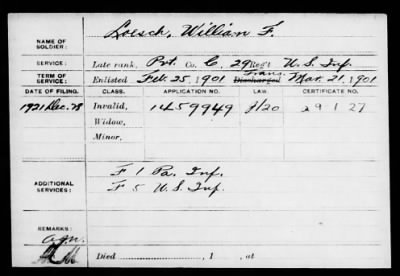 NAME OF SOLDIER: Loesch, William F.
SERVICE: Late rank, Pvt. Co. C, 29 Reg't U. S. Inf.
TERM OF SERVICE: Enlisted Feb. 25, 1901 Discharged Trans. Mar. 21, 1901
DATE OF FILING. CLASS. APPLICATION NO. LAW. CERTIFICATE NO.
1921 Dec. 28 Invalid, 1459949
Widow,
Minor,
ADDITIONAL SERVICES: F 1 Pa. Inf.
F 5 U. S. Inf.
REMARKS:
Died , 1 , at